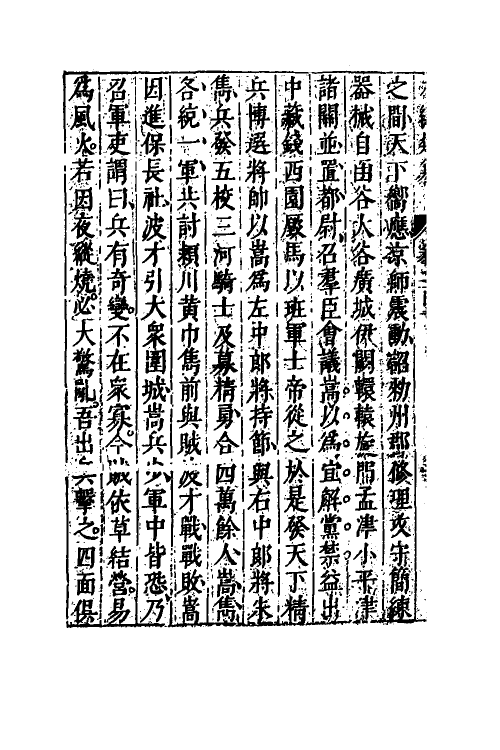 之間天下嚮應京師震動詔勑州郡修理攻守簡練
器械自函谷大谷廣城伊闕轘轅旋門孟津小平津
諸關並置都尉召羣臣會議嵩以爲宜解黨禁益出
中藏錢西園廐馬以班軍士帝從之於是發天下精
兵博選將帥以嵩爲左中郎將持節與右中郎將朱
雋兵發五校三河騎士及募精勇合四萬餘人嵩雋
各統一軍共討潁川黄巾雋前與賊波才戰戰敗嵩
因進保長社波才引大衆圍城嵩兵少軍中皆恐乃
召軍吏謂曰兵有奇變不在衆寡今賊依草結營易
爲風火若因夜縱燒必大驚亂吾出兵擊之四面俱